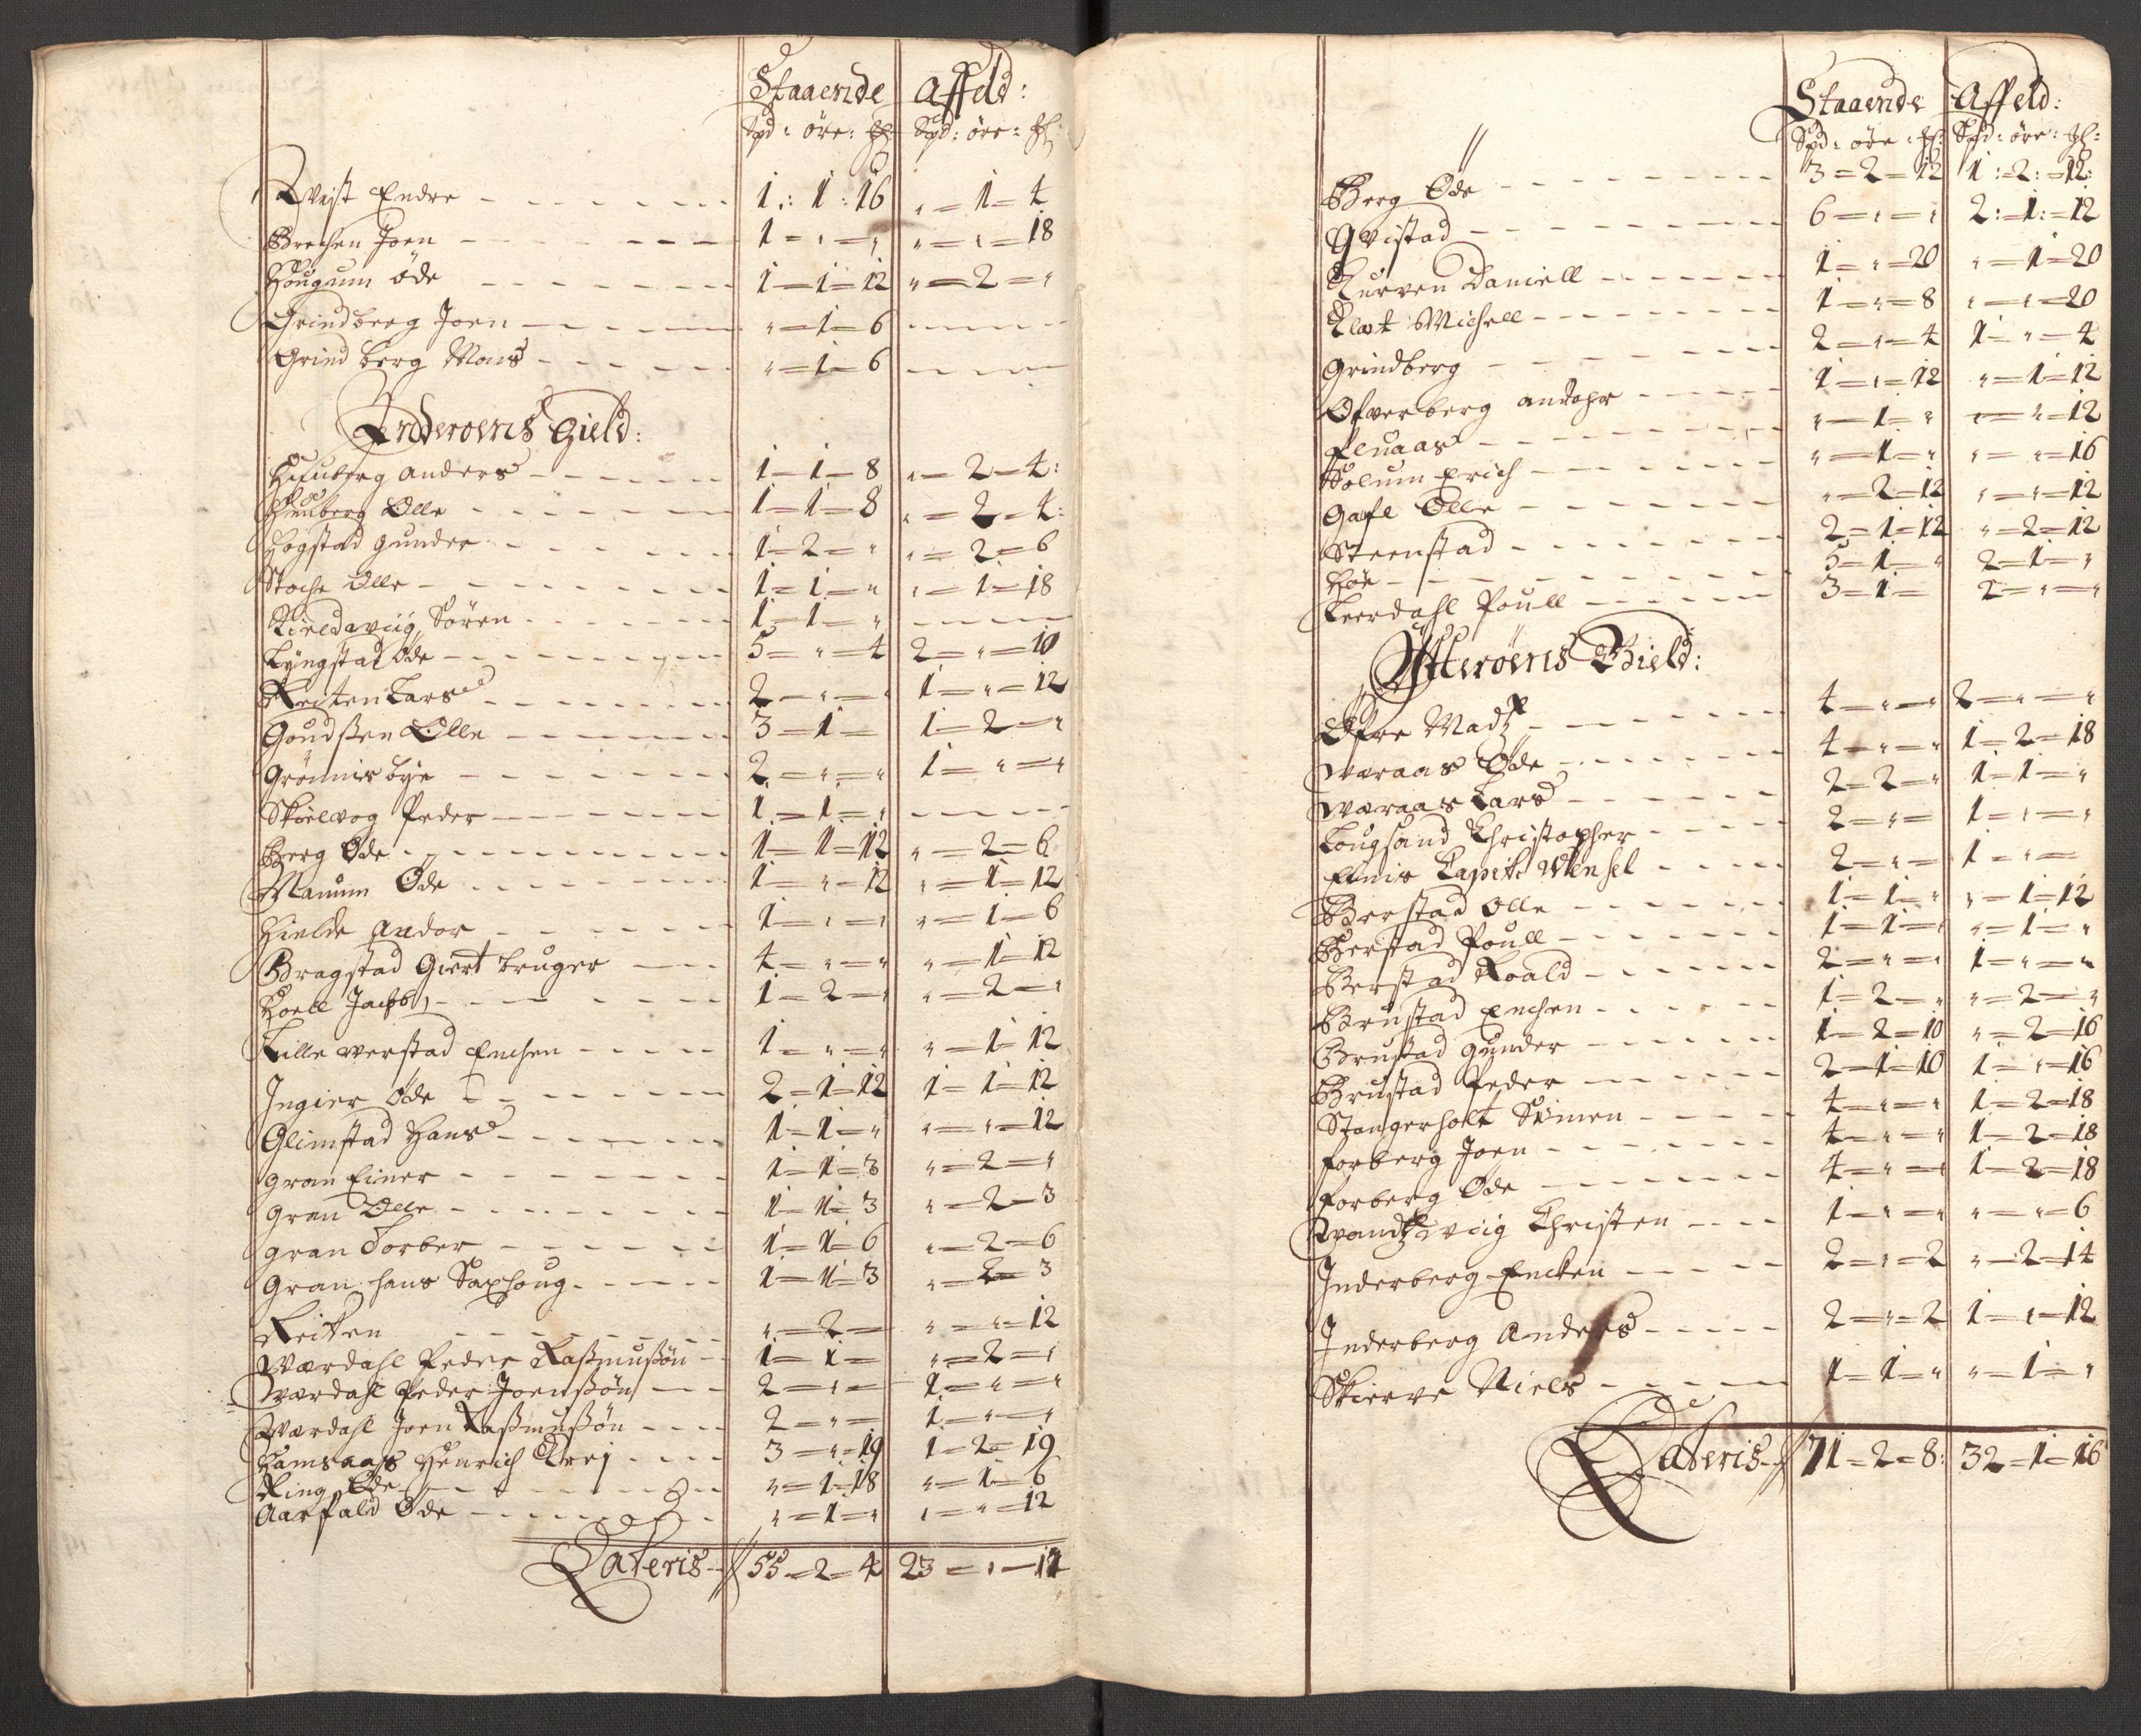 Staaende Affeld:
Spd: öre: Spd: öre:
Qvist Endre 1.: 1: 16 „ = 1 = 4
Brechen Joen 1 = „ = „ „ = „ = 18
Hougum öde 1 = 1 = 12 „ = 2 = „
Grindberg Joen „ = 1 = 6
Grindberg Mons „ = 1 = 6
Inderøens Gield:
Heuberg Anders 1 = 1 = 8 „ = 2 = 4:
Heuberg Olle 1 = 1 = 8 „ = 2 = 4:
Hogstad Gunder 1 = 2 = „ „ = 2 = 6
Stoche Olle 1 = 1 = „ „ = 1 = 18
Kieldaviig Sören 1 = 1 = „
Lyngstad Öde 5 = „ = 4 2 = „ = 10
Reiten Lars 2 = „ = „ 1 = „ = 12
Goudßen Olle 3 = 1 = 1 = 2 = „
Grönnis bye 2 = „ = „ 1 = „ = „
Skielvog Peder 1 = 1 = „
Berg Öde 1 = 1 = 12 „ = 2 = 6
Manum Öde 1 = „ = 12 „ = 1 = 12
Hielde Andor 1 = „ = „ „ = 1 = 6
Bragstad Giert bruger 4 = „ = „ „ = 1 = 12
Hoell Jacob 1 = 2 = „ „ = 2 = „
Lille werstad Enchen 1 = „ = „ „ = 1 = 12
Ingier Öde 2 = 1 = 12 1 = 1 = 12
Glimstad Hans 1 = 1 = „ „ = „ = 12
Gran Einer 1 = 1 = 3 „ = 2 = „
Gran Olle 1 = 1 = 3 „ = 2 = 3
Gran Torber 1 = 1 = 6 „ = 2 = 6
Gran Hans Saxhoug 1 = 1 = 3 „ = 2 = 3
Reitten „ = 2 = „ = „ = 12
Wærdahl Peder Raßmußön 1 = 1 = „ = 2 = „
Wærdahl Peder Joenßön 2 = „ = 1 = „ = „
Wærdahl Joen Raßmußön 2 = „ = 1 = „ = „
Hamsaas Henrich Krej 3 = „ = 19 1 = 2 = 19
Ring Öde „ = 1 = 18 „ = 1 = 6
Aarfald Öde „ = 1 = „ „ = „ = 12
Lateris 55 = 2 = 4 23 = „ = 12
Staaende Affeld:
Spd: öre: Spd: öre:
Berg Öde 3 = 2 = 12 1: = 2: = 12:
Qvistad 6 = „ = „ 2: = 1: = 12
Kurven Daniell 1 = „ = 20 „ = 1 = 20
Klæt Michell 1 = „ = 8 „ = „ = 20
Grindberg 2 = „ = 4 1 = „ = 4
Ofverberg 1 = „ = 12 „ = 1 = 12
Fluaas „ = 1 = „ „ = „ = 12
Solum Erich „ = 1 = „ „ = „ = 16
Gafl Olle „ = 2 = 12 „ = „ = 12
Steenstad 2 = 1 = 12 „ = 2 = 12
Höe 5 = 1 = „ 2 = 1 = „
Leerdahl Poull 3 = 1 = 2 = „ = „
Ytterøens Gield:
Öfre Madtz 4 = „ = „ 2 = „ = „
Waraas Öde 4 = „ = „ 1 = 2 = 18
Waraas Lars 2 = 2 = „ 1 = 1 = „
Lougsand Christopher 2 = „ = 1 = „ = „
Elnis Capit: Wensel 2 = „ = 1 = „ =
Berstad Olle 1 = 1 = „ „ = 1 = 12
Berstad Poull 1 = 1 = „ „ = 1 = „
Berstad Roald 2 = „ = „ 1 = „ = „
Brustad Enchen 1 = 2 = „ „ = 2 = „
Brustad Gunder 1 = 2 = 10 „ = 2 = 16
Brustad Peder 2 = 1 = 10 1 = „ = 16
Stangerholt Simen 4 = „ = „ 1 = 2 = 18
Forberg Joen 4 = „ = „ 1 = 2 = 18
Forberg Öde 4 = „ = „ 1 = 2 = 18
Wandtzviig Christen 1 = „ = „ „ = „ = 6
Inderberg Encken 2 = „ = 2 „ = 2 = 14
Inderberg Anders 2 = „ = 2 1 = „ = 12
Skierve Niels 1 = 1 = „ „ = 1 = „
Lateris 71 = 2 = 8: 32 = 1 = 16